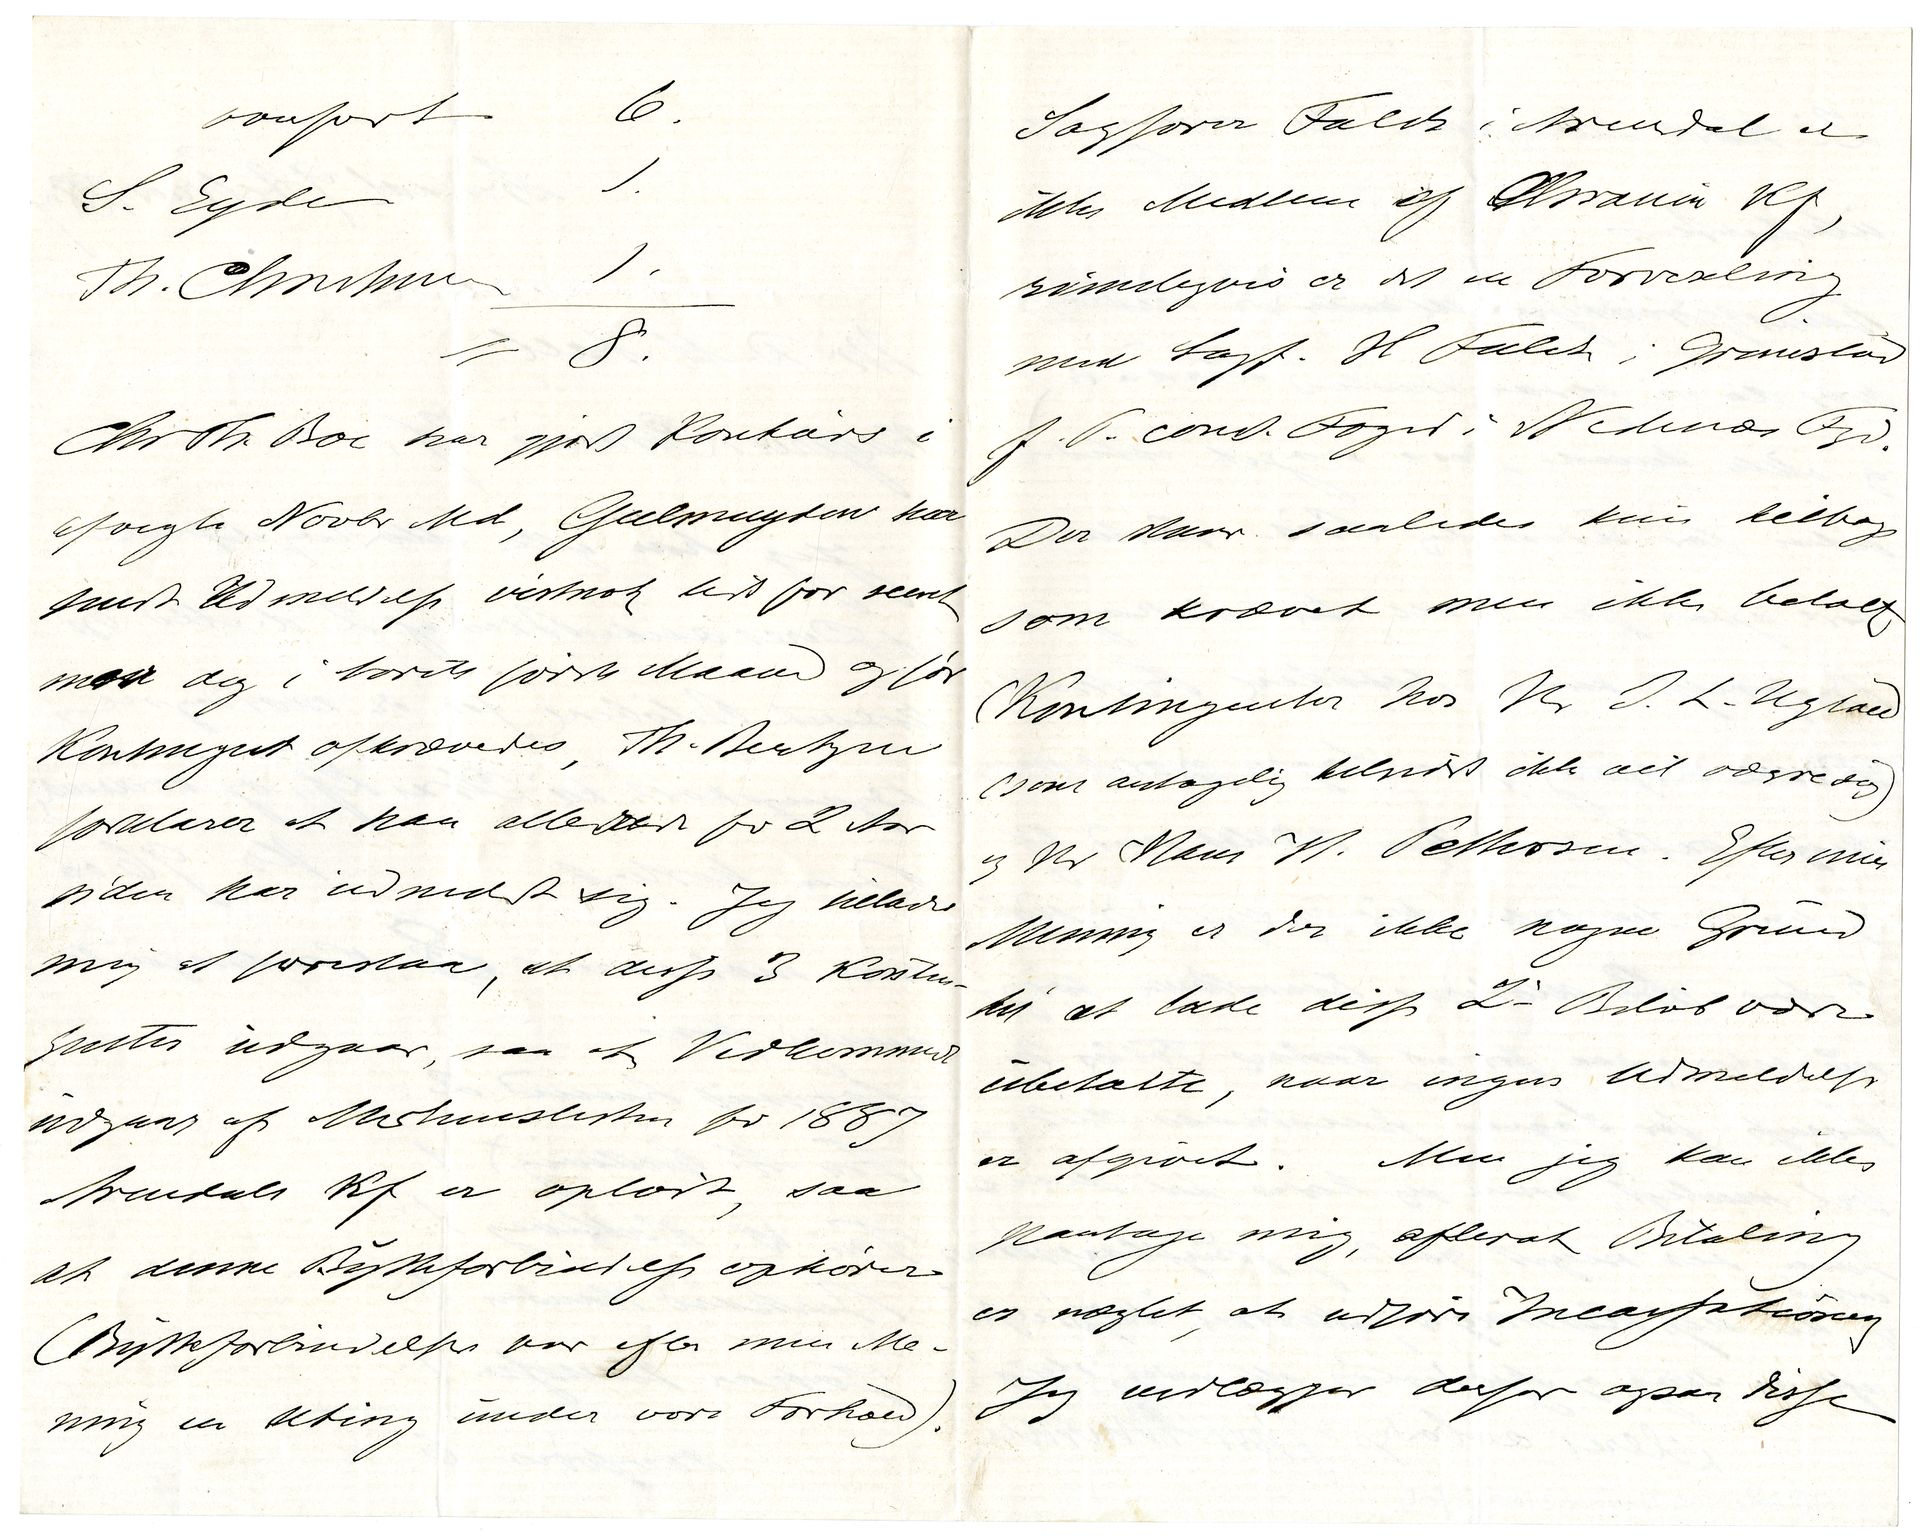 ovnfort 6.
S. Eyde 1.
Th. Christensen 1.
= 8.
Chr Th. Boe har gjort Konkurs i
afvigte Novbr Md, Gulmuyden har
sendt Udmeldelse vistnok lidt for seent
men dog i Aarets første Maaned og før
Kontingent afkrævedes, Th. Bentzen
forklarer at han allerede for 2 Aar
siden har udmeldt sig. Jeg tillader
mig at foreslaa, at disse 3 Kontin-
genter udgaar, saa at Vedkommende
udgaar af Medlemslisten for 1887
Arendals Kf er opløst, saa
at denne Bytteforbindelse ophører
(Bytteforbindelsen var efter min Me-
ning en Uting under vore Forhold).
Sagfører Falch i Arendal er
ikke Medlem af Chrania Kf,
rimeligvis er det en Forvexling
med Sagf. H Falch i Grimstad
f. T. const. Foged i Nedenæs Fgd.
Der staar saaledes kun tilbage
som krævet men ikke betalt
Kontingenter hos Hr J. L. Ugland
(som antagelig tilsidst ikke vil vægre sig)
og Hr Hans N. Petterson. Efter min
Mening er der ikke nogen Grund
til at lade disse 2 Beløb være
ubetalte, naar ingen Udmeldelse
er afgivet. Men jeg kan ikke
paatage mig, efterat Betaling
er nægtet, at udføre Incassationen
Jeg vedlægger derfor ogsaa disse